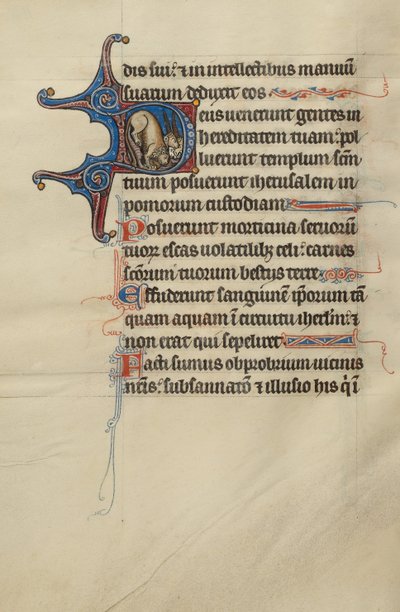 dis sui: & in intellectibus manuū
suarum deduxit eos
Deus venerunt gentes in
hereditatem tuam: pol
luerunt templum scm̄
tuum posuerunt iherusalem in
pomorum custodiam
Posuerunt morticina seruorū
tuor escas uolatilib; celi: carnes
scōrum tuorum bestiis terre
Effuderunt sanguinem ip̄orum tā
quam aquam ī circuitu iherlm̄: &
non erat qui sepeliret
Facti sumus obprobrium uicinis
nr̄is: subsannatō & illusio his q̄ ī